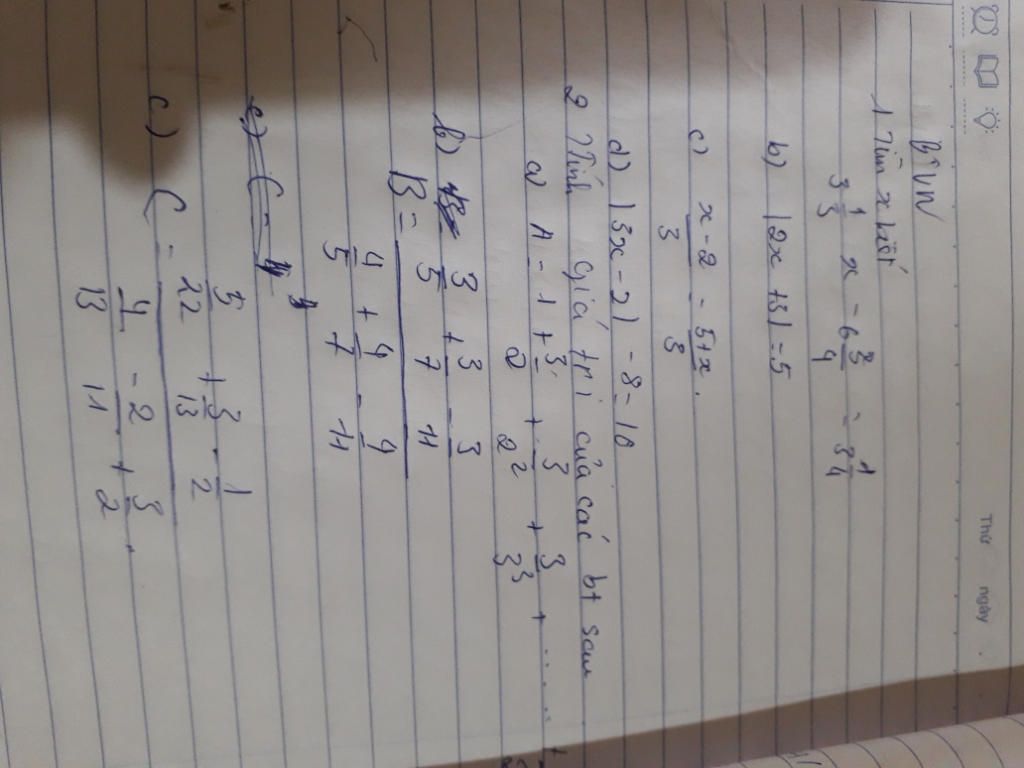 Thứ ngày
BTVN
1 Tìm x biết
3 1/3 x - 6 3/4 = 3 1/4
b) |2x + 3| = 5
c) x - 2 / 3 = 5 + x / 3 .
d) |3x - 2| - 8 = 10
2 Tính giá trị của các bt sau
a) A = 1 + 3/2 + 3/2² + 3/3³ + .....
b)
B = 3/5 + 3/7 - 3/11 / 4/5 + 4/7 - 4/11
c) C =
c.) C = 5/22 + 3/13 - 1/2 / 4/13 - 2/11 + 3/2 .